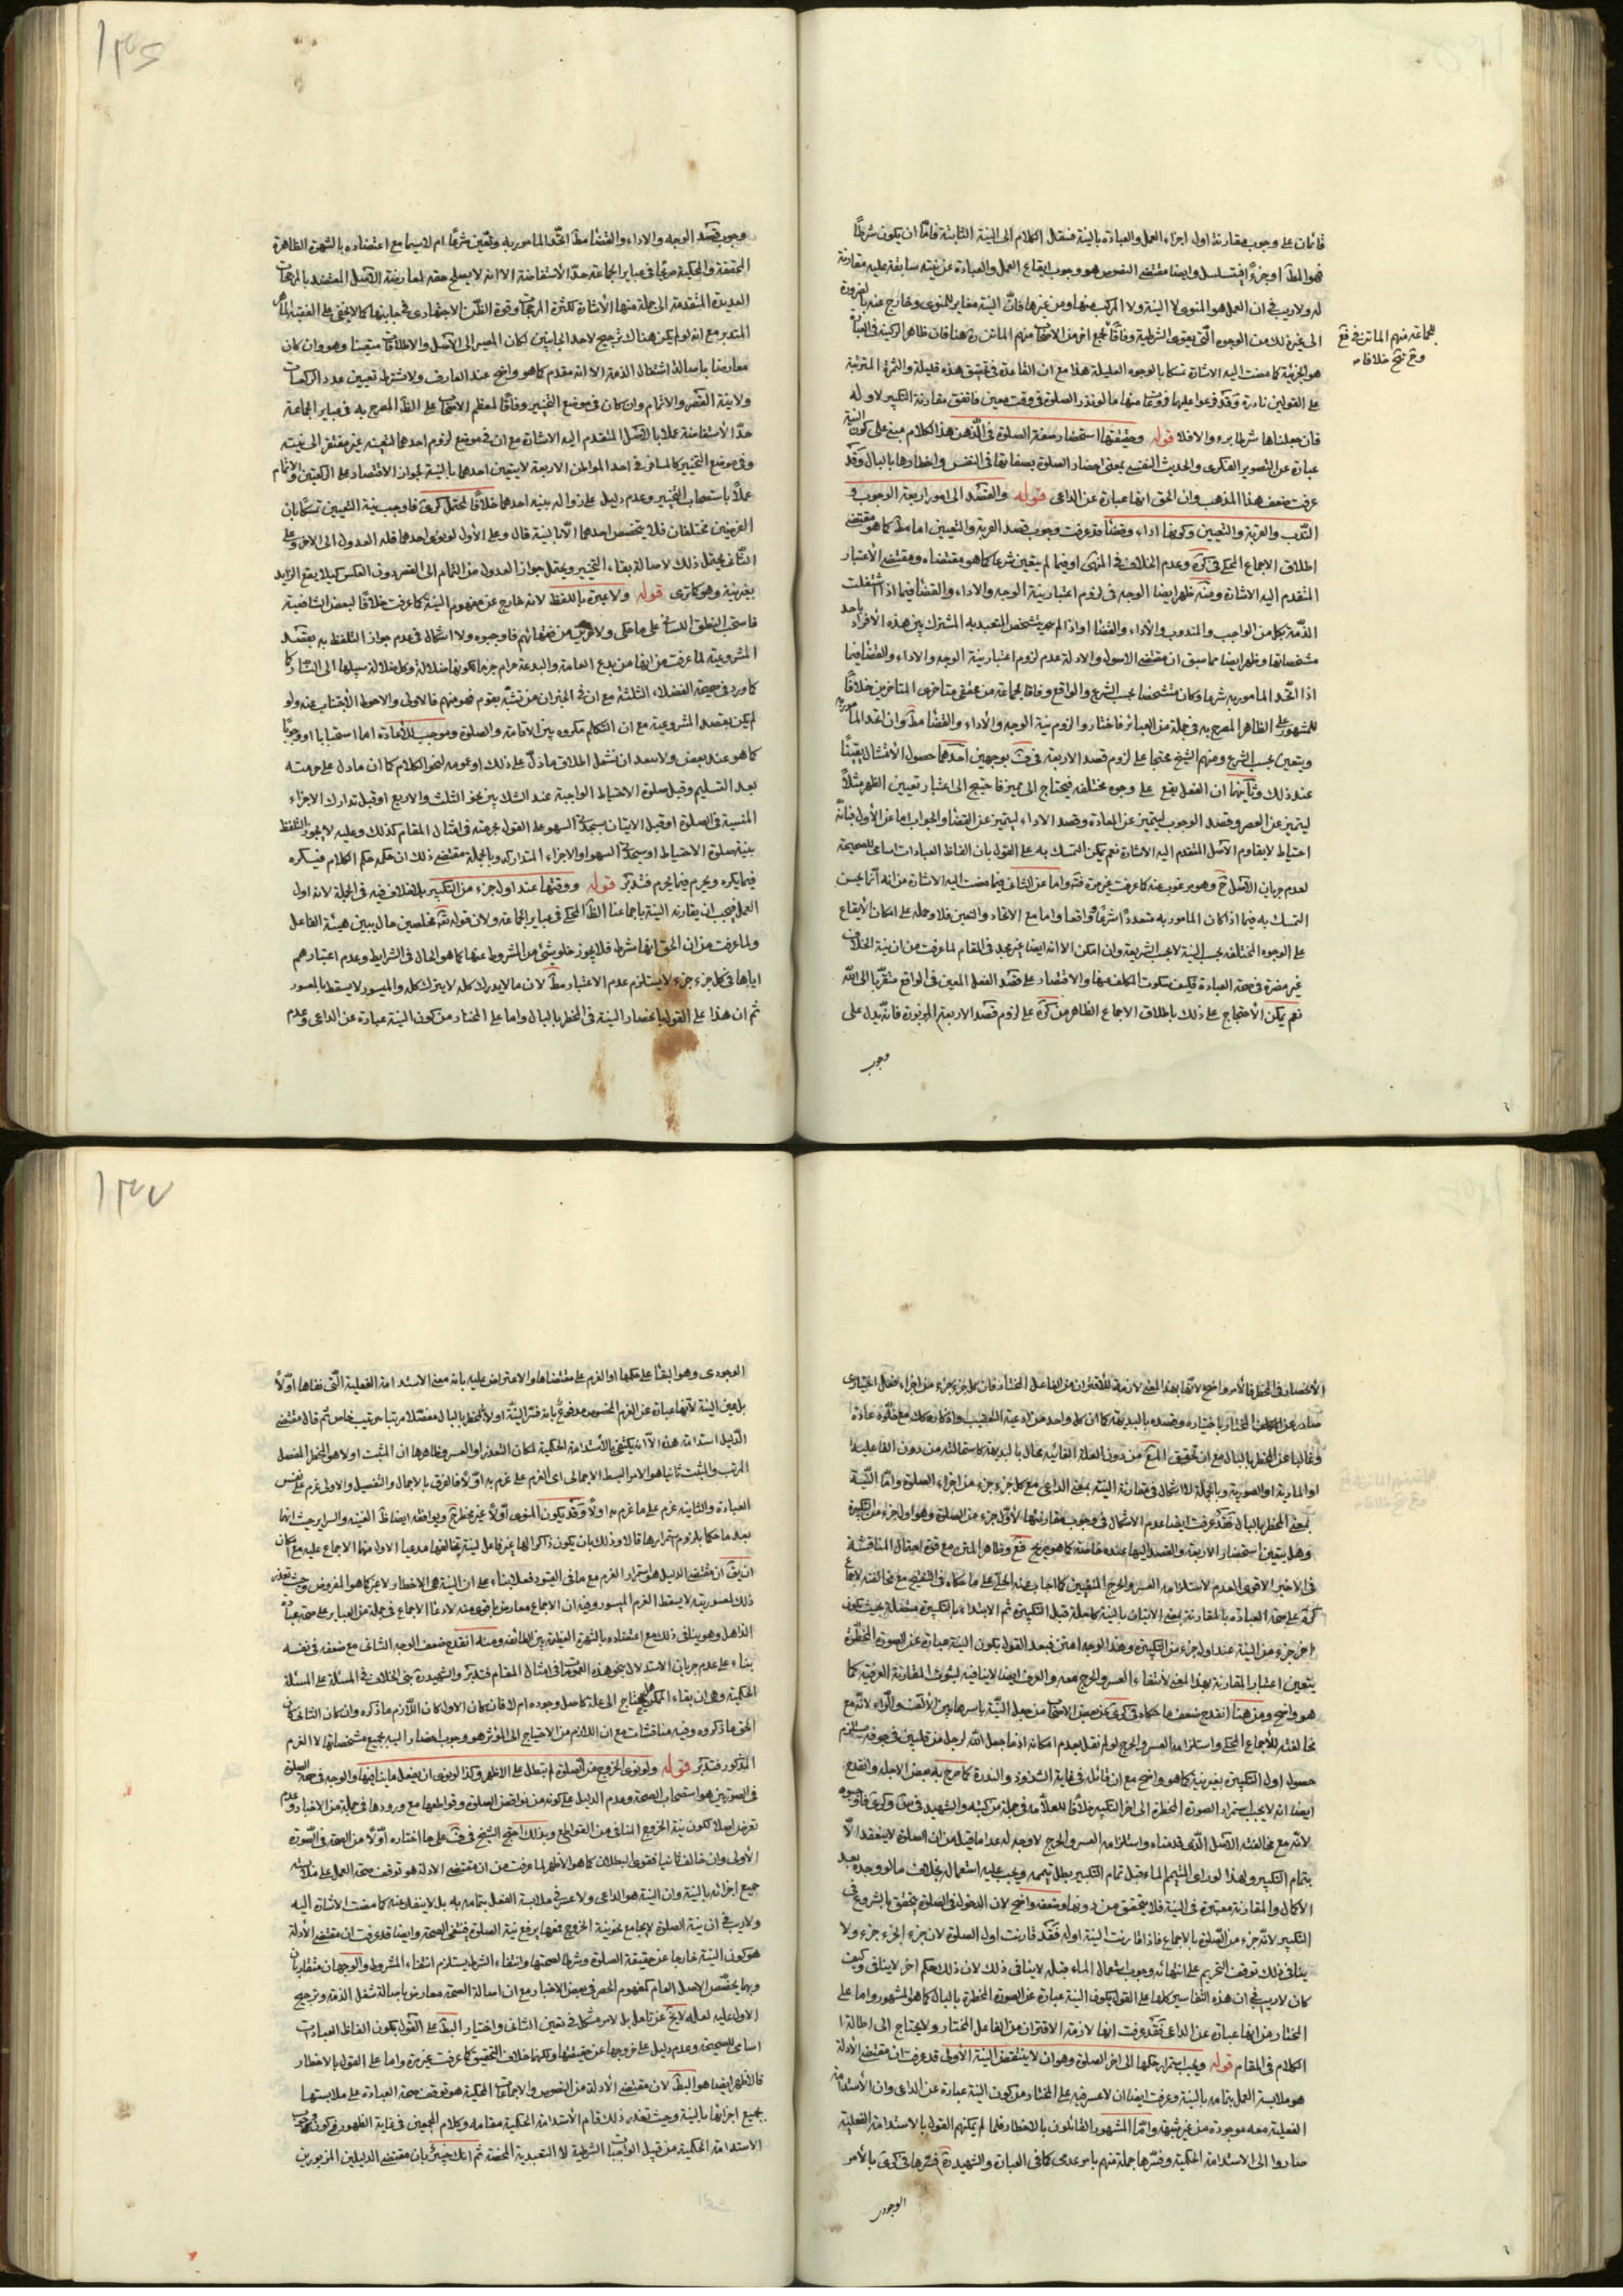 فان كان على وجوب مقارنة اول اجزاء العمل والعبادة بالنية فننقل الكلام الى النية الثانية فامّا ان يكون شرطًا
فهو المط او جزءً فيتسلسل وايضا مقتضى النصوص هو وجوب ايقاع العمل والعبادة عن نية سابقة عليه مقارنة
له ولا ريب في ان العمل هو المنوى لا النية ولا المركب منها ومن غيرها فانّ النية مغاير للمنوى وخارج عنه بالضرورة
الى غير ذلك من الوجوه الّتى يقوى الشرطية وفاقًا لجمع اخر من الاصحاب منهم الماتن ره هنا فان ظاهر الركنية في العبارة
للجماعة منهم الماتن في فع
هو الجزئية كما مضت اليه الاشارة تمسكا بالوجوه العليلة هذا مع ان الفائدة في تحقيق هذه قليلة والثمرة المترتبة
على القولين نادرة وقد فرعوا عليها فروعًا منها ما لو نذر الصلوة في وقت معين فاتفق مقارنة التكبير لاوله
فان جعلناها شرطا برء والا فلا قوله وحقيقتها استحضار صفة الصلوة في الذهن هذا الكلام مبنى على كون النية
عبارة عن التصوير الفكرى والحديث النفسى بمعنى احضار الصلوة بصفاتها في النفس واخطارها بالبال وقد
عرفت ضعف هذا المذهب وان الحق انها عبارة عن الداعى قوله والقصد الى امور اربعة الوجوب و
الندب والقربة والتعيين وكونها اداء وقضاء قد عرفت وجوب قصد القربة والتعيين اما مط كما هو مقتضى
اطلاق الاجماع المحكى في كره وعدم الخلاف في المنتهى او فيما لم يتعين شرعا كما هو مقتضاه ومقتضى الاعتبار
المتقدم اليه الاشارة ومنه ظهر ايضا الوجه في لزوم اعتبار نية الوجه والاداء والقضا فيما اذا اشتغلت
الذمّة بكل من الواجب والمندوب والاداء والقضا
مشخصاتها وظهر ايضا مما سبق ان مقتضى الاصول والادلة عدم لزوم اعتبار نية الوجه والاداء والقضا فيما
اذا اتّحد المامور به شرعا وكان متشخصا بحسب الشرع والواقع وفاقا لجماعة من محققى متاخرى المتاخرين خلافًا
للمشهور على الظاهر المصرح به في جملة من العبائر فاختاروا لزوم نية الوجه والاداء والقضا مط وان اتحد المامور به
ويتعين بحسب الشرع ومنهم الشيخ محتجا على لزوم قصد الاربعة في ف بوجهين احدهما حصول الامتثال يقينًا
عند ذلك وثانيهما ان الفعل يقع على وجوه مختلفة فيحتاج الى مميز فاحتيج الى اعتبار تعيين الظهر مثلًا
ليتميز عن العصر وقصد الوجوب ليتميز عن المعادة وقصد الاداء ليتميز عن القضا والجواب اما عن الأول فبانّه
احتياط لا يقاوم الاصل المتقدم اليه الاشارة نعم يمكن التمسك به على القول بان الفاظ العبادات اسامى للصحيحة
لعدم جريان الاصل ح وهو مرغوب عنه كما عرفت غير مرة واما عن الثانى فبما مضت اليه الاشارة من انه انّما يحسن
التمسك به فيما اذا كان المامور به متعددًا شرعًا وواقعا واما مع الاتحاد والتعين فلا وحمله على امكان الايقاع
على الوجوه المختلفة بحسب النية لا بحسب الشريعة وان امكن الا انه ايضا غير مجد في المقام لما عرفت من ان نية الخلاف
غير مضرة في صحة العبادة فكيف بسكوت المكلف عنها والاقتصار على قصد الفعل المعين في الواقع متقربا الى الله
نعم يمكن الاحتجاج على ذلك باطلاق الاجماع الظاهر من كره على لزوم قصد الاربعة المزبورة فانه يدل على
وجوب
١٣٥
وجوب قصد الوجه والاداء والقضا مط اتّحد المامور به وتعين شرعًا ام لا سيما مع اعتضاده بالشهرة الظاهرة
المحققة والمحكية صريحًا في عبائر الجماعة حدّ الاستفاضة الا انه لا يصلح حقه لمعارضة الاصل المعتضد بالمرجحات
العديدة المتقدمة الى جملة منها الاشارة لكثرة المرجحات وقوة الظن الاجتهادى في جانبها كما لا يخفى على الفقيه الماهر
المتدبر مع انه لو لم يكن هناك ترجيح لاحد الجانبين لكان المصير الى الاصل والاطلاقات متعينا وهو وان كان
معارضا باصالة اشتغال الذمة الا انه مقدم كما هو واضح عند العارف ولا يشترط تعيين عدد الركعات
ولا نية القصر والاتمام وان كان في موضع التخيير وفاقًا لمعظم الاصحاب على الظ المصرح به في عبائر الجماعة
حدّ الاستفاضة عملا بالاصل المتقدم اليه الاشارة مع ان في موضع لزوم احدهما لتعينه غير مفتقر الى نية
وفي موضع التخيير كالمسافر في احد المواطن الاربعة لا يتعين احدهما بالنية لجواز الاقتصار على الركعتين والاتمام
عملًا باستصحاب التخيير وعدم دليل على زواله بنية احدهما خلافًا لمحتمل كرى فاوجب نية التعيين تمسكًا بان
الفرضين مختلفان فلا يتخصص احدهما الّا بالنية قال وعلى الأول لو نوى احدهما فله العدول الى الاخر وعلى
الثانى يحتمل ذلك لاصالة بقاء التخيير ويحتمل جواز العدول من التمام الى القصر دون العكس كيلا يقع الزايد
بغير نية وهو كما ترى قوله ولا عبرة باللفظ لانه خارج عن مفهوم النية كما عرفت خلافًا لبعض الشافعية
المشروعية لما عرفت من انها من بدع العامة والبدعة حرام جزما لكونها ضلالة وكل ضلالة سبيلها الى النار
كما ورد في صحيحة الفضلاء الثلثة مع ان في الخبر ان من تشبّه بقوم فهو منهم فالاولى والاحوط الاجتناب عنه ولو
لم يكن بقصد المشروعية مع ان التكلم مكروه بين الاقامة والصلوة وموجب للاعادة اما استحبابا او وجوبًا
كما هو عند بعض ولا يبعد ان نشمل اطلاق ما دلّ على ذلك او عمومه لنحو الكلام كما ان ما دل على حرمته
بعد التسليم وقبل صلوة الاحتياط الواجبة عند الشك بين نحو الثلث والاربع او قبل تدارك الاجزاء
المنسية في الصلوة او قبل الاتيان بسجدتى السهو على القول بحرمته في امثال المقام كذلك وعليه لا يجوز التلفظ
بنية صلوة الاحتياط او سجدتى السهو او الاجزاء المتداركه وبالجملة مقتضى ذلك ان حكمه حكم الكلام فيكره
فيما يكره ويحرم فيما يحرم فتدبّر قوله ووقتها عند اول جزء من التكبير بلا خلاف فيه في الجملة لانه اول
العمل فيجب ان يقارنه النية باجماعنا الظ المحكى في عبائر الجماعة ولان قوله تع مخلصين حال يبين هيئة الفاعل
ولما عرفت من ان الحق انها شرط فلا يجوز خلو شئ من المشروط عنها كما هو الحال في الشرايط وعدم اعتبارهم
اياها في كل جزء جزء لا يستلزم عدم الاعتبار مط لان ما لا يدرك كله لا يترك كله والميسور لا يسقط بالمعسور
ثم ان هذا على القول بانحصار النية في المخطر بالبال واما على المختار من كون النية عبارة عن الداعى وعدم
الانحصار في المخطر فالامر واضح لانّها بهذا المعنى لازمة للاقتران من الفاعل المختار فان كل جزء جزء من اجزاء فعل اختيارى
صادر عن المكلف المختار باختياره وقصده بالبديهة كما ان كل واحد من ادعية التعقيب واذكاره كك مع خلوه عادة
وغالبا عن المخطر بالبال مع ان تحقيق المع من دون العلة الغائيه محال بالبديهة كاستحالته من دون الفاعلية
او المادية او الصورية وبالجملة لا اشكال في مقارنة النية بمعنى الداعى مع كل جزء جزء من اجزاء الصلوة وامّا النّية
بمعنى المخطر بالبال فقد عرفت ايضا عدم الاشكال في وجوب مقارنتها لأوّل جزء من الصلوة وهو اول جزء من التكبيرة
وهل يتعين استحضار الاربعة والقصد اليها عنده خاصة كما هو صريح فع وظاهر المتن مع قوة احتمال المناقشة
في الاخير الاقوى العدم لاستلزامه العسر والحرج المنفيين
كره على صحة العبادة بالمقارنة بمعنى الاتيان بالنية كاملة قبل التكبيرة ثم الابتداء بالتكبيرة متصلة بحيث يكون
اخر جزء من النية عند اول جزء من التكبيرة وهذا الوجه امتن فبعد القول بكون النية عبارة عن الصورة المخطرة
يتعين اعتبار المقارنة بهذا المعنى لانتفاء العسر والحرج معه والعرف ايضا لا ينافيه لثبوت المقارنة العرفية كما
هو واضح ومن هنا انقدح ضعف ما حكاه في كرى عن بعض الاصحاب من جعل النّية باسرها بين الالف والراء لانّه مع
مخالفته للاجماع المحكى واستلزامه العسر والحرج لو لم نقل بعدم امكانه اذ ما جعل الله لرجل من قلبين في جوفه مستلزم
حصول اول التكبيرة بغير نية كما هو واضح مع ان قائله في غاية الشذوذ والندرة كما صرح به بعض الاجلة وانقدح
ايضا انه لا يجب استمرار الصورة المخطرة الى اخر التكبير خلافًا للعلّامة في جملة من كتبه والشهيد في س وكرى فاوجبوه
لانّه مع مخالفته الاصل الّذى قدمناه واستلزامه العسر والحرج لا وجه له عدا ما قيل من ان الصلوة لا ينعقد الّا
بتمام التكبير ولهذا لو راى المتيمم الماء قبل تمام التكبير بطل تيممه ويجب عليه استعماله بخلاف ما لو وجده بعد
الاكمال والمقارنة معتبرة في النية فلا يتحقق من دونها وضعفه واضح لان الدخول في الصلوة يتحقق بالشروع في
التكبير لانّه جزء من الصّلوة بالاجماع فاذا قارنت النية اوله فقد قارنت اول الصلوة لان جزء الجزء جزء ولا
ينافى ذلك توقف التحريم على انتهائه ووجوب استعمال الماء قبله لا ينافى ذلك لان ذلك حكم اخر لا ينافى وكيف
كان لا ريب في ان هذه التفاسير كلها على القول بكون النية عبارة عن الصورة المخطرة بالبال كما هو المشهور واما على
المختار من انها عبارة عن الداعى فقد عرفت انها لازمة الاقتران من الفاعل المختار ولا يحتاج الى اطالة
الكلام في المقام قوله ويجب استمرار حكمها الى اخر الصلوة وهو ان لا ينتقض النية الأولى قد عرفت ان مقتضى الأدلة
هو ملابسة العمل بتمامه بالنية وعرفت ايضا ان لا عسر فيه على المختار من كون النية عبارة عن الداعى وان الأستدامة
الفعلية معه موجودة من غير شبهة وامّا المشهور القائلون بالاخطار فلما لم يمكنهم القول بالاستدامة الفعلية
صاروا الى الاستدامة الحكمية وفسّرها جملة منهم بامر عدمى كما في العبارة والشهيد ره فسّرها في كرى بالأمر
الوجودى
١٣٧
الوجودى وهو البقا على حكمها او العزم على مقتضاها والاعتراض عليه بانه معنى الاستدامة الفعلية الّتى نفاها اوّلًا
بل عين النية لانّها عبارة عن العزم المخصوص مدفوع بانه فسّر النيّة اولًا بالمخطر بالبال مفصّلا مرتبا بترتيب خاص ثم قال مقتضى
الدليل استدامة هذه الّا انه يكتفى بالاستدامة الحكمية لمكان التعذر او العسر وظاهرها ان المثبت اولا هو المخطر المفصل
المرتب والمثبت ثانيا هو الامر البسيط الاجمالى اى العزم على عزم به اوّلًا فالفرق بالاجمال والتفصيل والاولى عزم على نفس
العبادة والثانية عزم على ما عزم به اولًا وقد يكون المنوى اوّلًا غير مخطر ح ويوافقه ايضا ظ الغنية والسراير حيث انهما
بعد ما حكما بلزوم استمرارها قالا وذلك بان يكون ذاكرا لها غير فاعل لنية تخالفها مدعيا الاول منهما الاجماع عليه مع امكان
ان يق ان مقتضى الدليل هو استمرار العزم مع ما في القيود فعلا بناء على ان النية هى الاخطار لا غير كما هو المفروض وحيث تعذر
ذلك لعسوريته لا يسقط العزم الميسور وفيه ان الاجماع معارض باقوى منه لادعاء الاجماع في جملة من العبائر على صحة عبادة
الذاهل وهو ينافى ذلك مع اعتضاده بالشهرة العظيمة بين الطائفة ومنه انقدح ضعف الوجه الثانى مع ضعفه في نفسه
بناء على عدم جريان الاستدلال بنحو هذه العمومات في امثال المقام فتدبّر والشهيد ره بنى الخلاف في المسئلة على المسئلة
الحكمية وهى ان بقاء الممكن هل يحتاج الى علة كاصل وجوده ام لا فان كان الاول كان اللازم ما ذكره وان كان الثانى كان
الحق ما ذكروه وفيه مناقشات مع ان اللازم من الاحتياج الى المؤثر هو وجوب احضار النية بجميع مشخصاتها لا العزم
المذكور فتدبّر قوله ولو نوى الخروج من الصلوة لم تبطل على الاظهر وكذا لو نوى ان يفعل ما ينافيها والوجه في صحة الصلوة
في الصورتين هو استصحاب الصحة وعدم الدليل على كونه من نواقض الصلوة وقواطعها مع ورودها في جملة من الاخبار وعدم
تعرض اصلا لكون نية الخروج المنافى من القواطع وبذلك احتج الشيخ في ف على ما اختاره أوّلًا من الصحة في الصّورة
الأولى وان خالف ثانيا فقوى البطلان كما هو الاظهر لما عرفت من ان مقتضى الادلة هو توقف صحة العمل على ملابسة
جميع اجزائه بالنية وان النية هو الداعى ولا عسر في ملابسة الفعل بتمامه به بل لا ينفك عنه كما مضت الاشارة اليه
ولا ريب في ان نية الصلوة لا يجامع نحو نية الخروج فمعها يرفع نية الصلوة فينتفى الصحة وايضا قد عرفت ان مقتضى الأدلة
هو كون النية خارجا عن حقيقة الصلوة وشرطا لصحتها وانتفاء الشرط يستلزم انتفاء المشروط والوجهان متقاربان
وبهما يخصّص الاصل العام كمفهوم الحصر في بعض الاخبار مع ان اصالة الصحة معارض باصالة شغل الذمة وترجيح
الاول عليه لعله لا يخ عن تامل بل لا مر مشكل في تعين الثانى واختيار البط على القول بكون الفاظ العبادات
اسامى للصحيحة وعدم دليل على خروجها عن حقيقتها ولكنها خلاف التحقيق كما عرفت غير مرة واما على القول بالاخطار
فالاظهر ايضا هو البط لان مقتضى الأدلة من النصوص والاجماعات المحكية هو توقف صحة العبادة على ملابستها
بجميع اجزائها بالنية وحيث تعذر ذلك قام الاستدامة الحكمية مقامه وكلام المجمعين في غاية الظهور في كون وجوب
الاستدامة الحكمية من قبيل الواجبات الشرطية لا التعبدية المحضة ثم انك خبير بان مقتضى الدليلين المزبورين